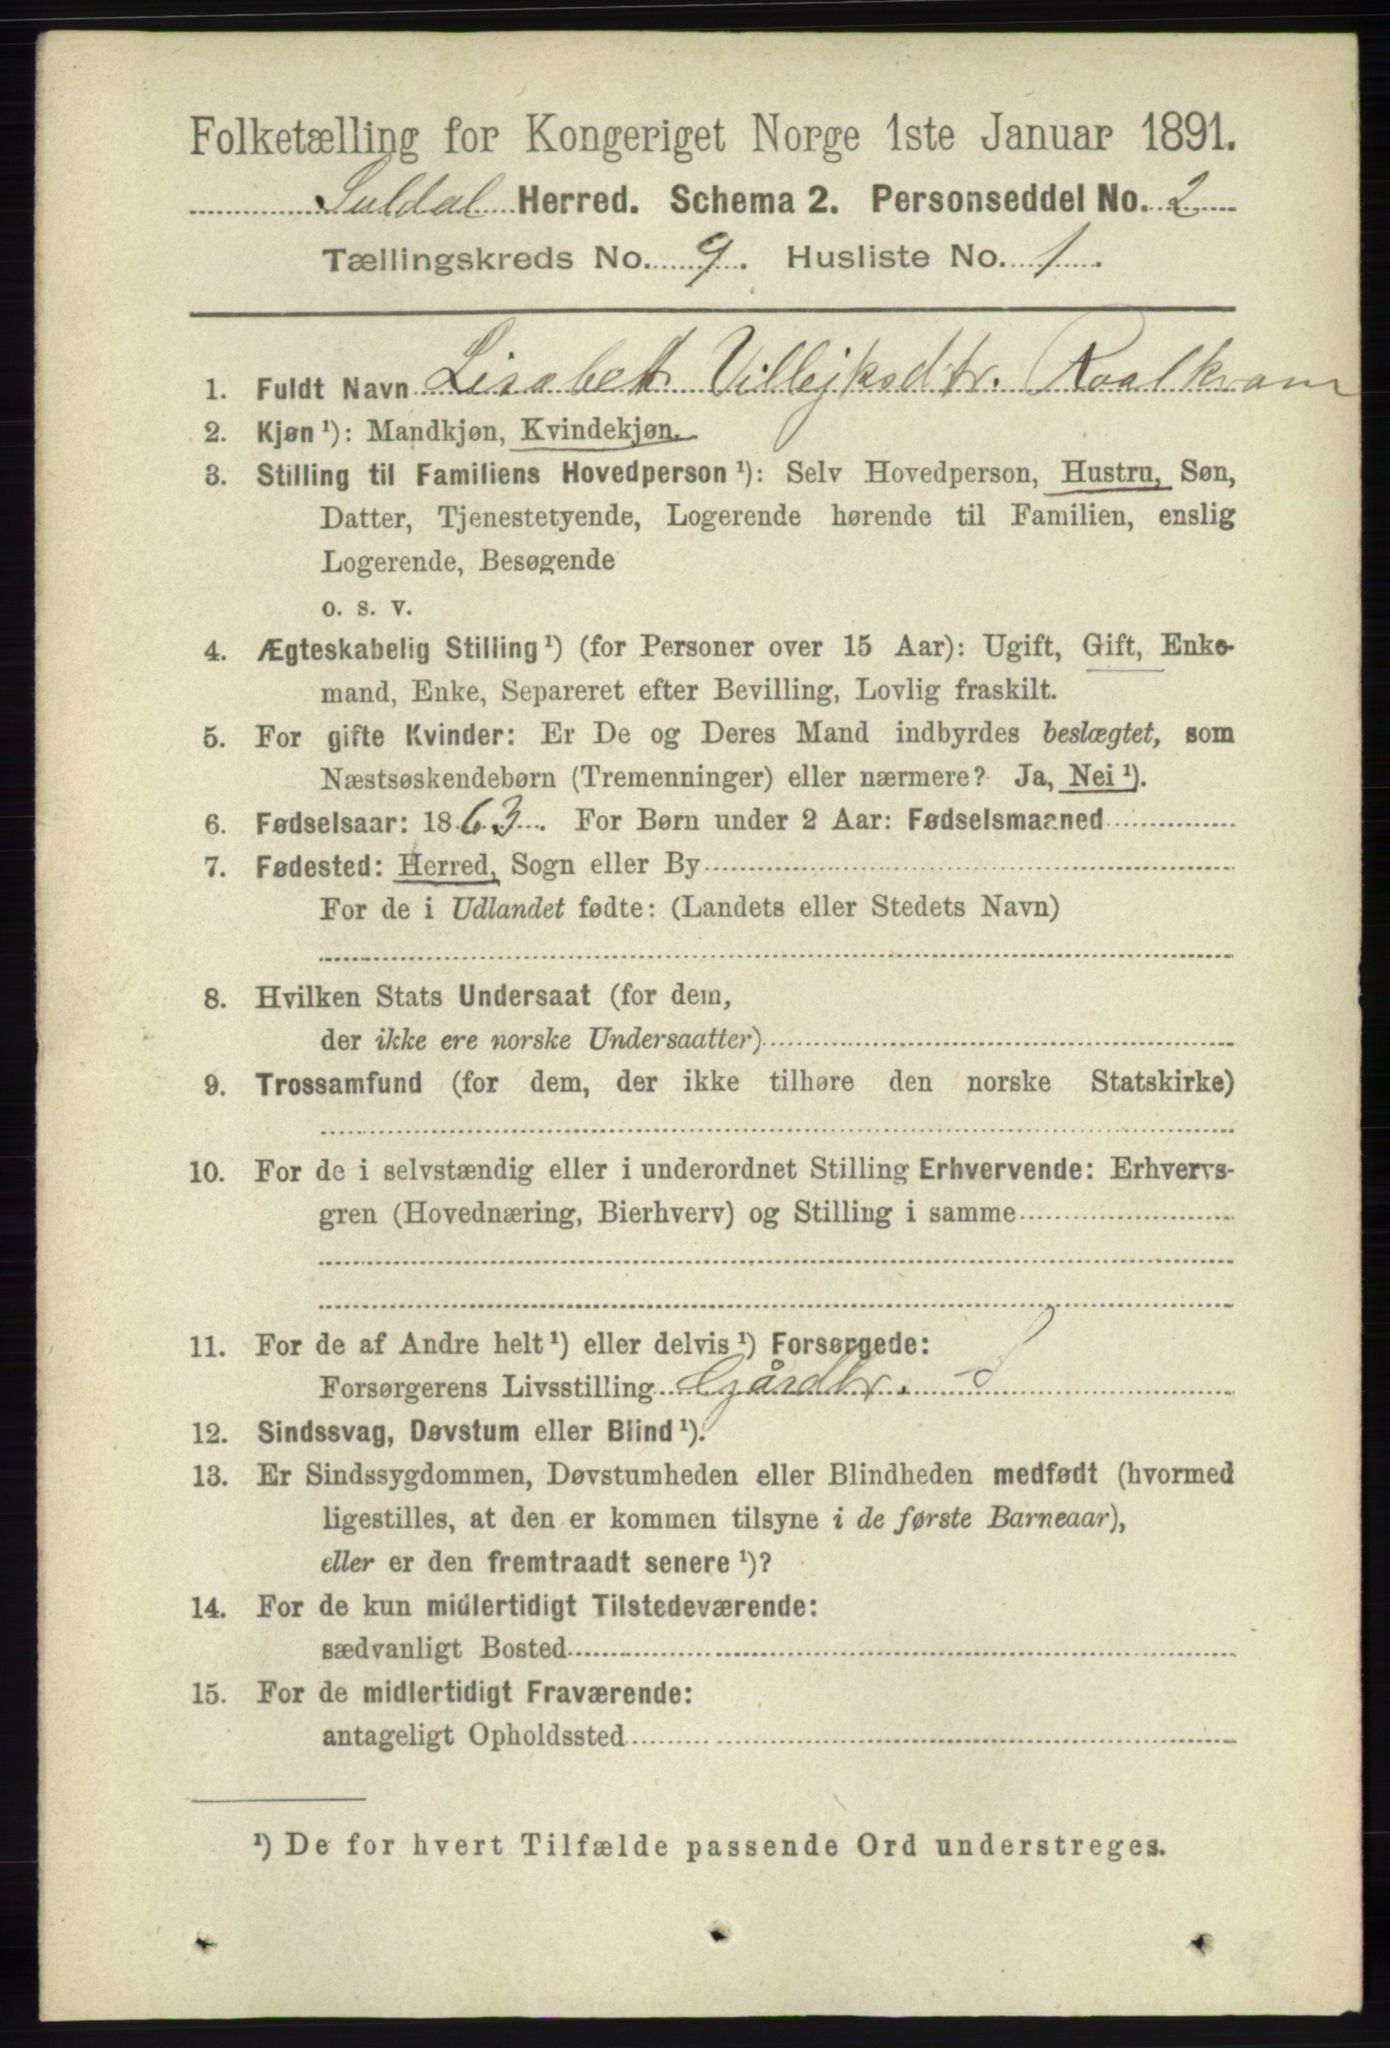 Folketælling for Kongeriget Norge 1ste Januar 1891.
Suldal Herred. Schema 2. Personseddel No. 2
Tællingskreds No. 9. Husliste No. 1.
1. Fuldt Navn Lisabet Villejksdtr. Roalkvam
2. Kjøn ¹): Mandkjøn, Kvindekjøn.
3. Stilling til Familiens Hovedperson ¹): Selv Hovedperson, Hustru, Søn,
Datter, Tjenestetyende, Logerende hørende til Familien, enslig
Logerende, Besøgende
o. s. v.
4. Ægteskabelig Stilling ¹) (for Personer over 15 Aar): Ugift, Gift, Enke-
mand, Enke, Separeret efter Bevilling, Lovlig fraskilt.
5. For gifte Kvinder: Er De og Deres Mand indbyrdes beslægtet, som
Næstsøskendebørn (Tremenninger) eller nærmere? Ja, Nei ¹).
6. Fødselsaar: 1863. For Børn under 2 Aar: Fødselsmaaned
7. Fødested: Herred, Sogn eller By
For de i Udlandet fødte: (Landets eller Stedets Navn)
8. Hvilken Stats Undersaat (for dem,
der ikke ere norske Undersaatter)
9. Trossamfund (for dem, der ikke tilhøre den norske Statskirke)
10. For de i selvstændig eller i underordnet Stilling Erhvervende: Erhvervs-
gren (Hovednæring, Bierhverv) og Stilling i samme
11. For de af Andre helt ¹) eller delvis ¹) Forsørgede:
Forsørgerens Livsstilling Gårdbr.
12. Sindssvag, Døvstum eller Blind ¹).
13. Er Sindssygdommen, Døvstumheden eller Blindheden medfødt (hvormed
ligestilles, at den er kommen tilsyne i de første Barneaar),
eller er den fremtraadt senere ¹)?
14. For de kun midlertidigt Tilstedeværende:
sædvanligt Bosted
15. For de midlertidigt Fraværende:
antageligt Opholdssted
¹) De for hvert Tilfælde passende Ord understreges.